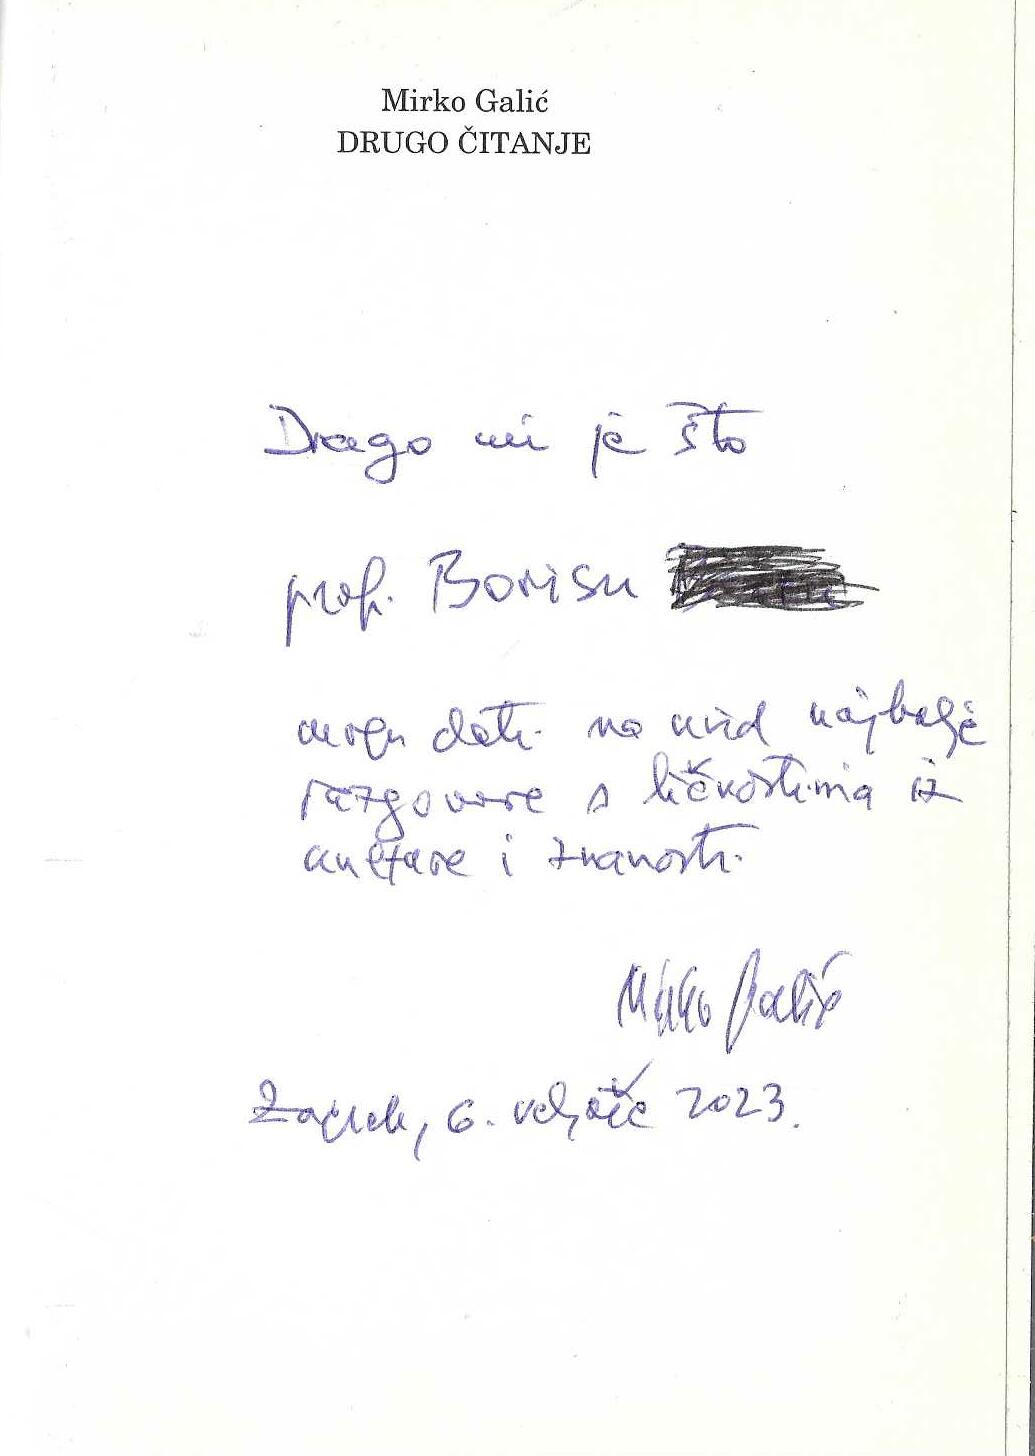 Mirko Galić
DRUGO ČITANJE
Drago mi je što
prof. Borisu
mogu dati na uvid najbolje
razgovore s ličnostima iz
kulture i znanosti.
Mirko Galić
Zagreb, 6. veljače 2023.